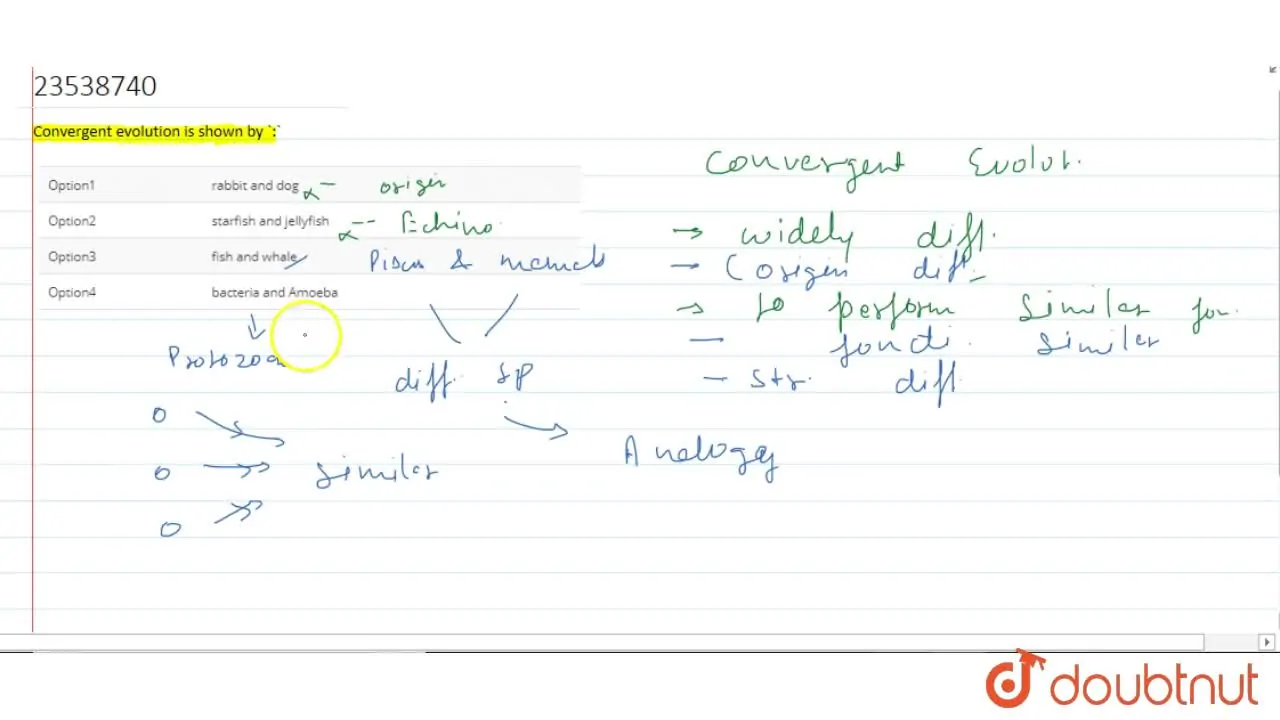 23538740
Convergent evolution is shown by `:`
Convergent Evolut.
Option1 rabbit and dog x – origin
Option2 starfish and jellyfish x -- Echino.
→ widely diff.
Option3 fish and whale ✓ Pisces & mamals
– (origin diff.
Option4 bacteria and Amoeba
→ to perform similar fon.
– foncti. similar
Protozoa
diff. sp
– str. diff.
o
o similar
o
Analogy
doubtnut